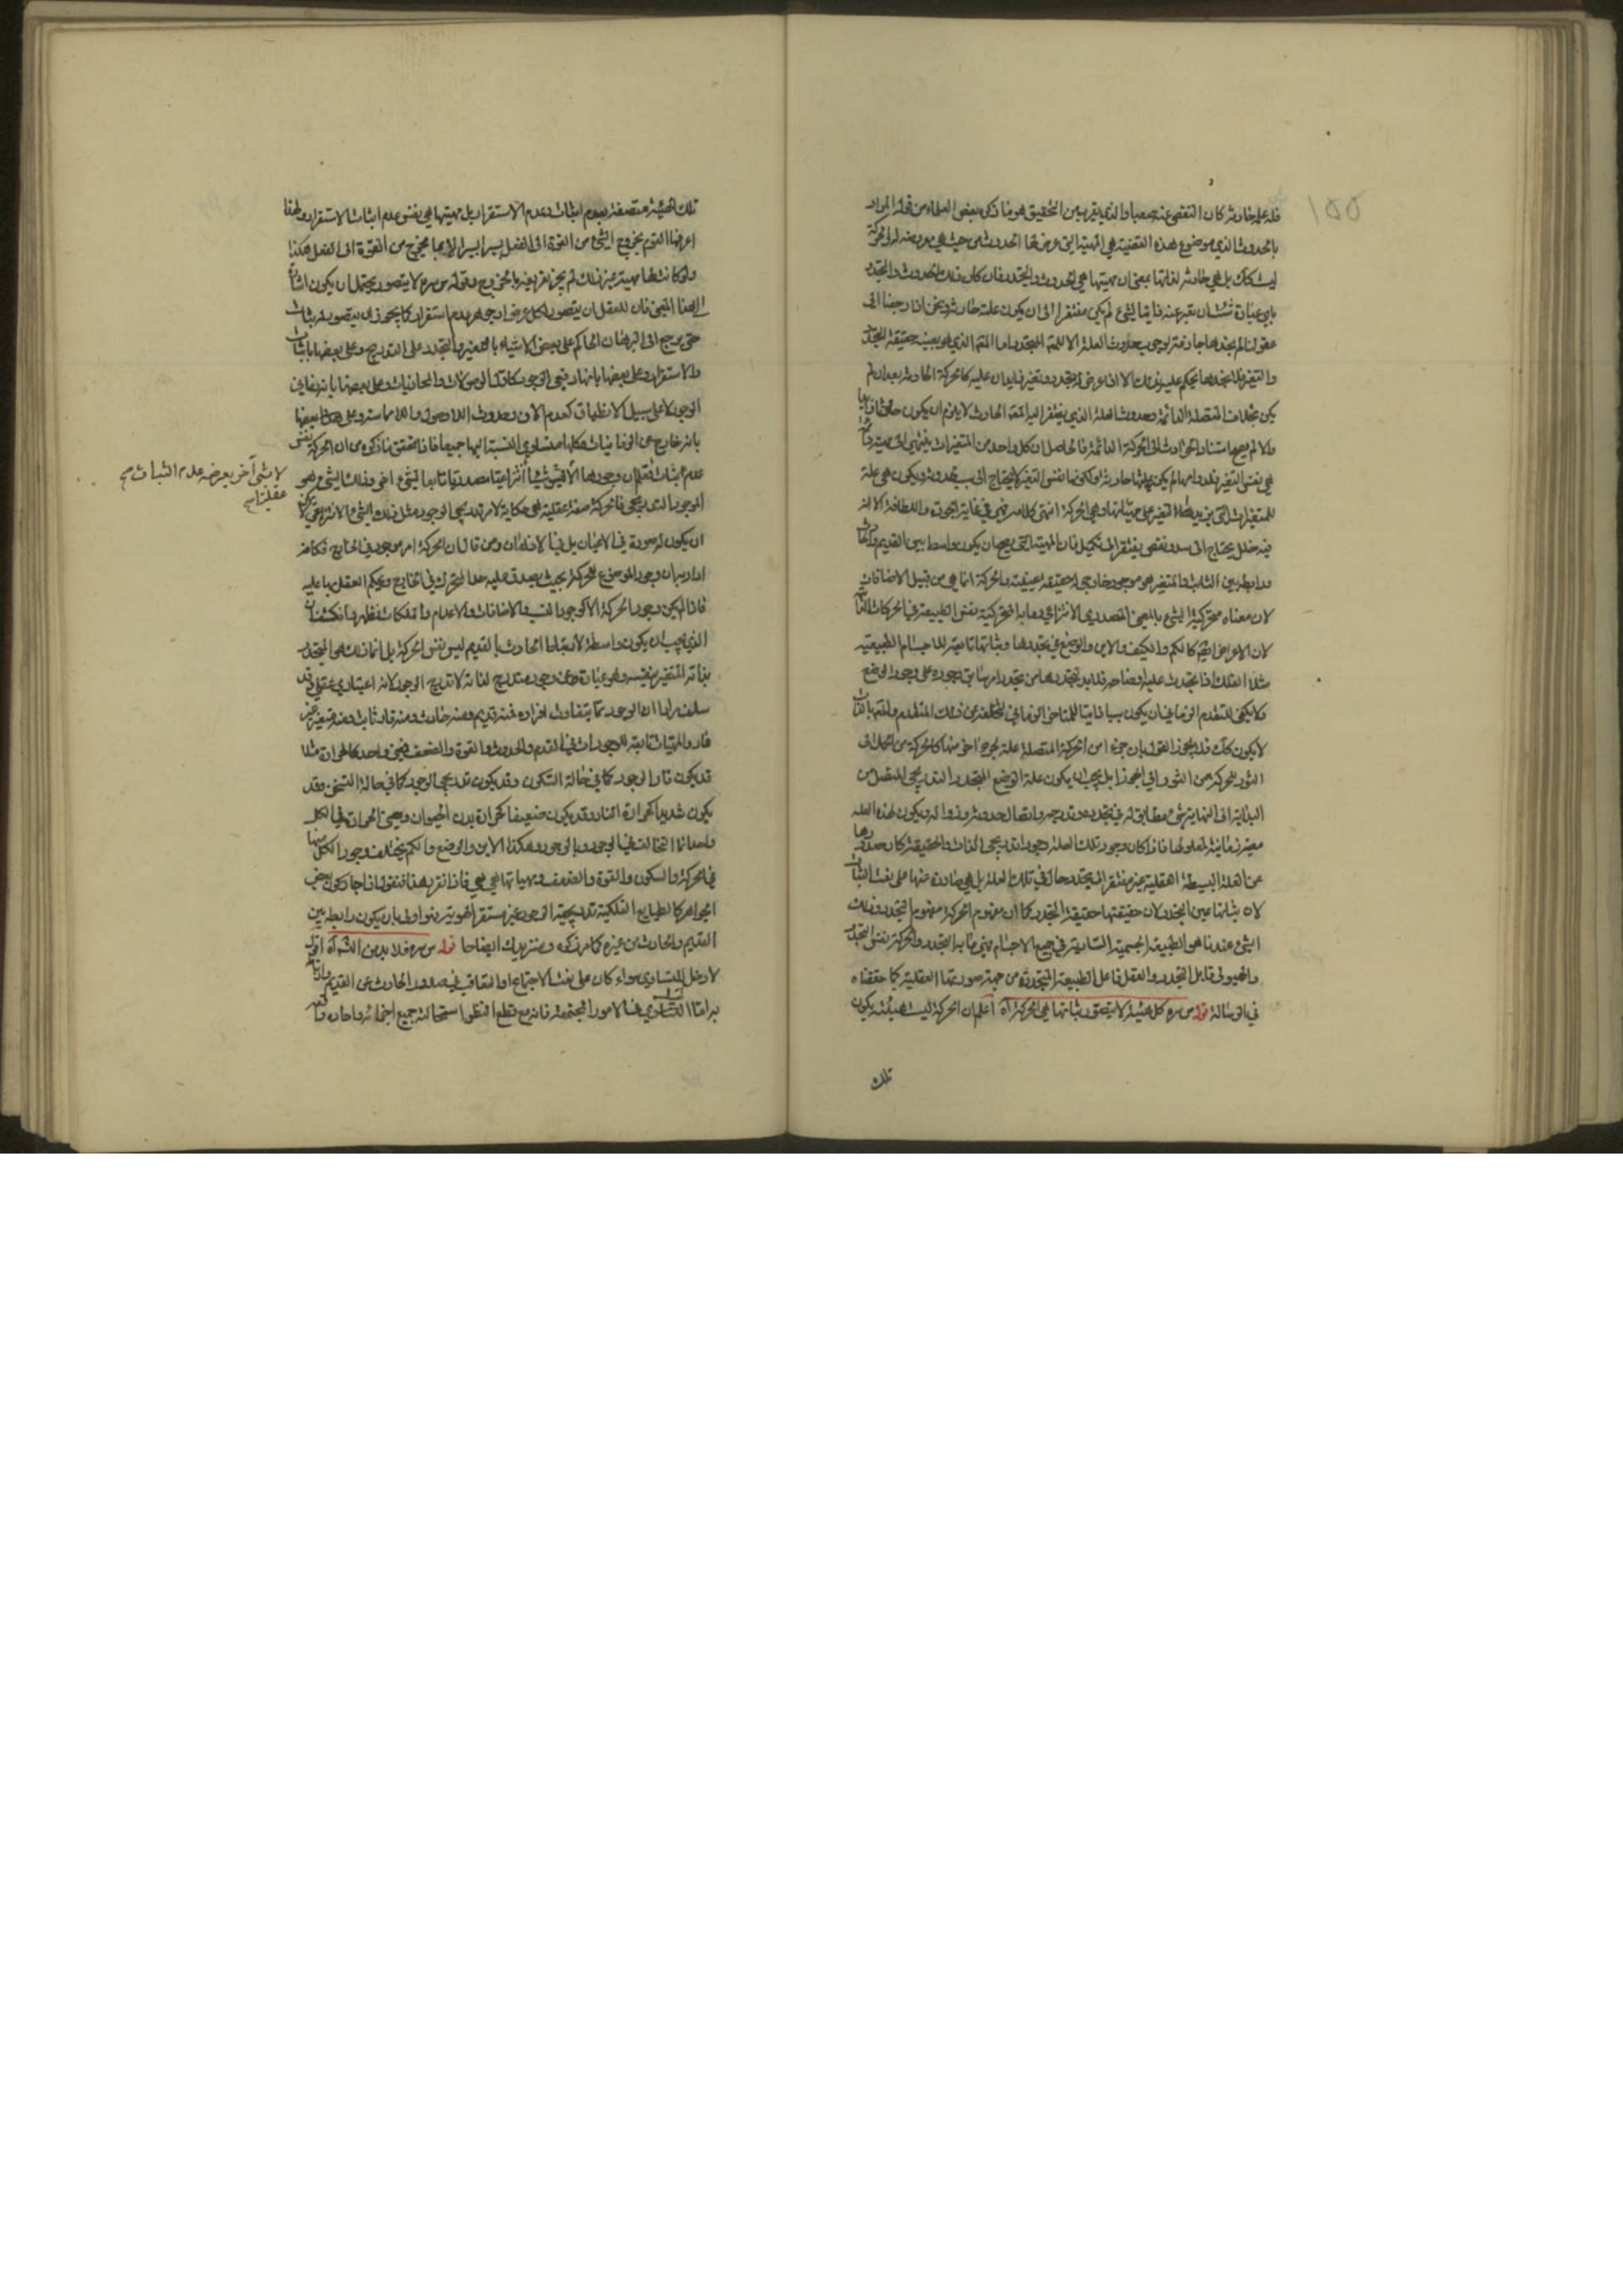 فله علة حادثة كان التفصى عنه صعبا والذي يقرب من التحقيق هو ما ذكره بعض العلماء من قوله المراد
بالحدوث الذي موضوع هذه القضية هي المهية التي عرض لها الحدوث من حيث هي معروضة له والحركة
ليست كك بل هي حادثة لذاتها بمعنى ان مهيتها هي الحدوث والتجدد فان كان ذلك الحدوث والتجدد
باي عبارة شئت ان تعبر عنه ذاتيا لشيء لم يكن مفتقرا الى ان يكون علته حادثة ونحن اذا رجعنا الى
عقولنا لم نجدها جازمة بوجوب حدوث العلة الا للمتجدد اما الذي هو بعينه حقيقة التجدد
والتغير فلا نجدها تحكم عليه بذلك الا اذا عرض له تجدد وتغير زايدان عليه كالحركة الحادثة بعد ان لم
يكن بخلاف المتصلة الدائمة وحدوث العلة الذي يفتقر اليه المعلول الحادث لا يلزم ان يكون حادثا
والا لم يصح استناد الحوادث الى الحركة الدائمة فالحاصل ان كل واحد من المتغيرات ينتهي الى مهية
هي نفس التغير فلدوامها لم يكن علتها حادثة ولكونها نفس التغير لا يحتاج الى سبب حدوثه ويكون هي علة
للمتغيرات التي يطرأ التغير على مهياتها وهي الحركة انتهى كلامه وهي في غاية الجودة واللطافة الا انه
فيه خلل يحتاج الى سده ونقص يفتقر الى تكميل فان المهية التي يصح ان يكون واسطا بين القديم والحادث
ورابطة بين الثابت والمتغير هو موجود خارجي له حقيقة عينية والحركة انما هي من قبيل الاضافات
لان معناه متحركية الشيء بالمعنى المصدري الانتزاعي وما به المتحركية نفس الطبيعة في الحركات الذاتية
لان الاعراض ايضا كالكم والكيف والاين والوضع في تجددها وثباتها تابعة للاجسام الطبيعية
مثلا الفلك اذا تجددت عليه اوضاعه فلا بد لتجددها من تجدد امر سابق وجوده على وجود الوضع
ولا يكفي المتقدم الزماني ان يكون سببا ذاتيا للمتاخر الزماني لتخلفه عن ذلك المتقدم والمقدم بالذات
لا يكون كك فلا يجوز القول بان جزءا من الحركة المتصلة علة لجزء اخر منها كالحركة من الحمل الى
الثور للحركة من الثور الى الجوزا بل يجب ان يكون علة الوضع المتجدد التدريجي المتصل من
البداية الى النهاية شيء مطابق له في تجدده وتدرجه واتصاله وحدوثه وزواله ويكون لهذه العلة
معية زمانية لمعلولها فاذا كان وجود تلك العلة وجودا تدريجي الذات والحقيقة كان صدورها
عن العلة البسيطة العقلية غير مفتقر الى تجدد حال في تلك العلة بل هي صادرة عنها على نعت الثبات
لان ثباتها عين التجدد لان حقيقتها حقيقة التجدد كما ان مفهوم الحركة مفهوم التجدد وذلك
الشيء عندنا هو الطبيعة الجسمية السارية في جميع الاجسام فهي ما به التجدد والحركة نفس التجدد
والهيولى قابل التجدد والعقل فاعل الطبيعة المتجددة من جهة صورتها العقلية كما حققناه
في الرسالة قوله س سره كل هيئة لا يتصور ثباتها هي الحركة آه اعلم ان الحركة ليست هيئة يكون
تلك
تلك الهيئة متصفة بعدم الثبات وعدم الاستقرار بل مهيتها هي نفس عدم الثبات والاستقرار ولهذا
عرفها القوم بخروج الشيء من القوة الى الفعل يسيرا يسيرا لا بما يخرج من القوة الى الفعل هكذا
ولو كانت لها مهية غير ذلك لم يجز تعريفه بالخروج وقوله س سره لا يتصور يحتمل ان يكون اشارة
الى هذا المعنى فان للعقل ان يتصور لكل عرض او جوهر عدم استقرار كما يجوز ان يتصور له ثبات
حتى يرجع الى البرهان الحاكم على بعض الاشياء بالتغير والتجدد على التدريج وعلى بعضها بالثبات
والاستقرار وعلى بعضها بانها دفعي الوجود كالوصولات والمحاذيات وعلى بعضها بانه زماني
الوجود لا على سبيل الانطباق كعدم الان وحدوث اللاوصول واللامماسة وعلى بعضها
بانه خارج عن الزمانيات كلها متساوي النسبة اليها جميعا فاذا تحقق ما ذكره من ان الحركة نفس
عدم الثبات لا شيء آخر يعرضه عدم الثبات صح
عقليتا صح
الموجود التدريجي فالحركة صفة عقلية هي حكاية لامر تدريجي الوجود مثل ذلك الشيء الانتزاعي لا يجوز
ان يكون له صورة في الاعيان بل في الاذهان ومن قال ان الحركة امر موجود في الخارج فكانه
اراد بيان وجود الموضوع للحركة بحيث يصدق عليه حد المتحرك في الخارج ويحكم العقل بها عليه
فاذا لم يكن وجود الحركة الا كوجود النسب والاضافات والاعدام والملكات فظهر وانكشف ان
الذي يجب ان يكون واسطة لارتباط الحادث بالقديم ليس نفس الحركة بل انما ذلك هو المتجدد
بذاته المتغير بنفسه وهو عبارة عن وجود متدرج لذاته لا تدرج الوجود لانه اعتباري عقلي وقد
سلف مرارا ان الوجود مما يتفاوت افراده فمنه قديم ومنه حادث ومنه قار ثابت ومنه متغير غير
قار والمهيات تابعة للوجودات في القدم والحدوث والقوة والضعف فمعنى واحد كالحرارة مثلا
قد يكون قار الوجود كما في حالة السكون وقد يكون تدريجي الوجود كما في حالة التسخن وقد
يكون شديدا كحرارة النار وقد يكون ضعيفا كحرارة بدن الحيوان ومعنى الحرارة في الكل
واحد انما التخالف في الوجود وبالوجود وهكذا الاين والوضع والكم يختلف وجود الكل منها
في الحركة والسكون والقوة والضعف ومهياتها هي هي فاذا تقرر هذا فنقول اذا جاز كون بعض
الجواهر كالطبايع الفلكية تدريجية الوجود غير مستقر الهوية فهو اولى بان يكون رابطة بين
القديم والحادث من غيره كما مر ذكره وسنزيدك ايضاحا قوله س سره فلا بد من التسـ آه اقول
لا دخل للتساوي سواء كان على نعت الاجتماع او التعاقب في صدور الحادث عن القديم وارتباطه
به اما التساوي في الامور المجتمعة فانه مع قطع النظر استحالته جميع اجزائه واحاده